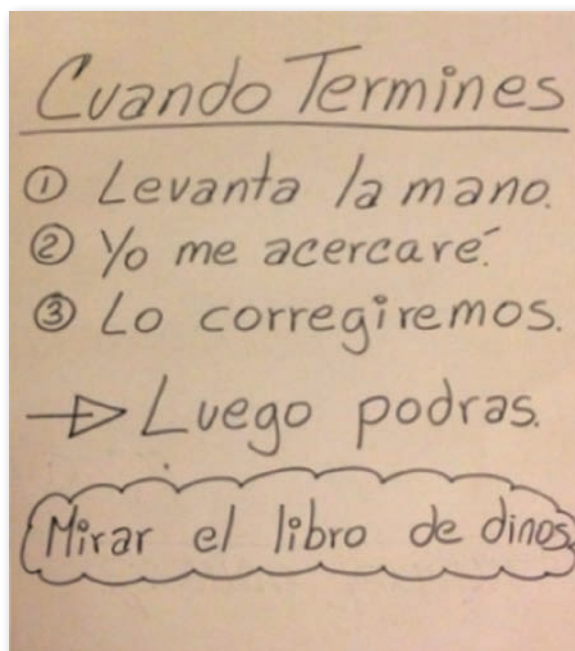 Cuando Termines
① Levanta la mano.
② Yo me acercaré.
③ Lo corregiremos.
→ Luego podras.
Mirar el libro de dinos.